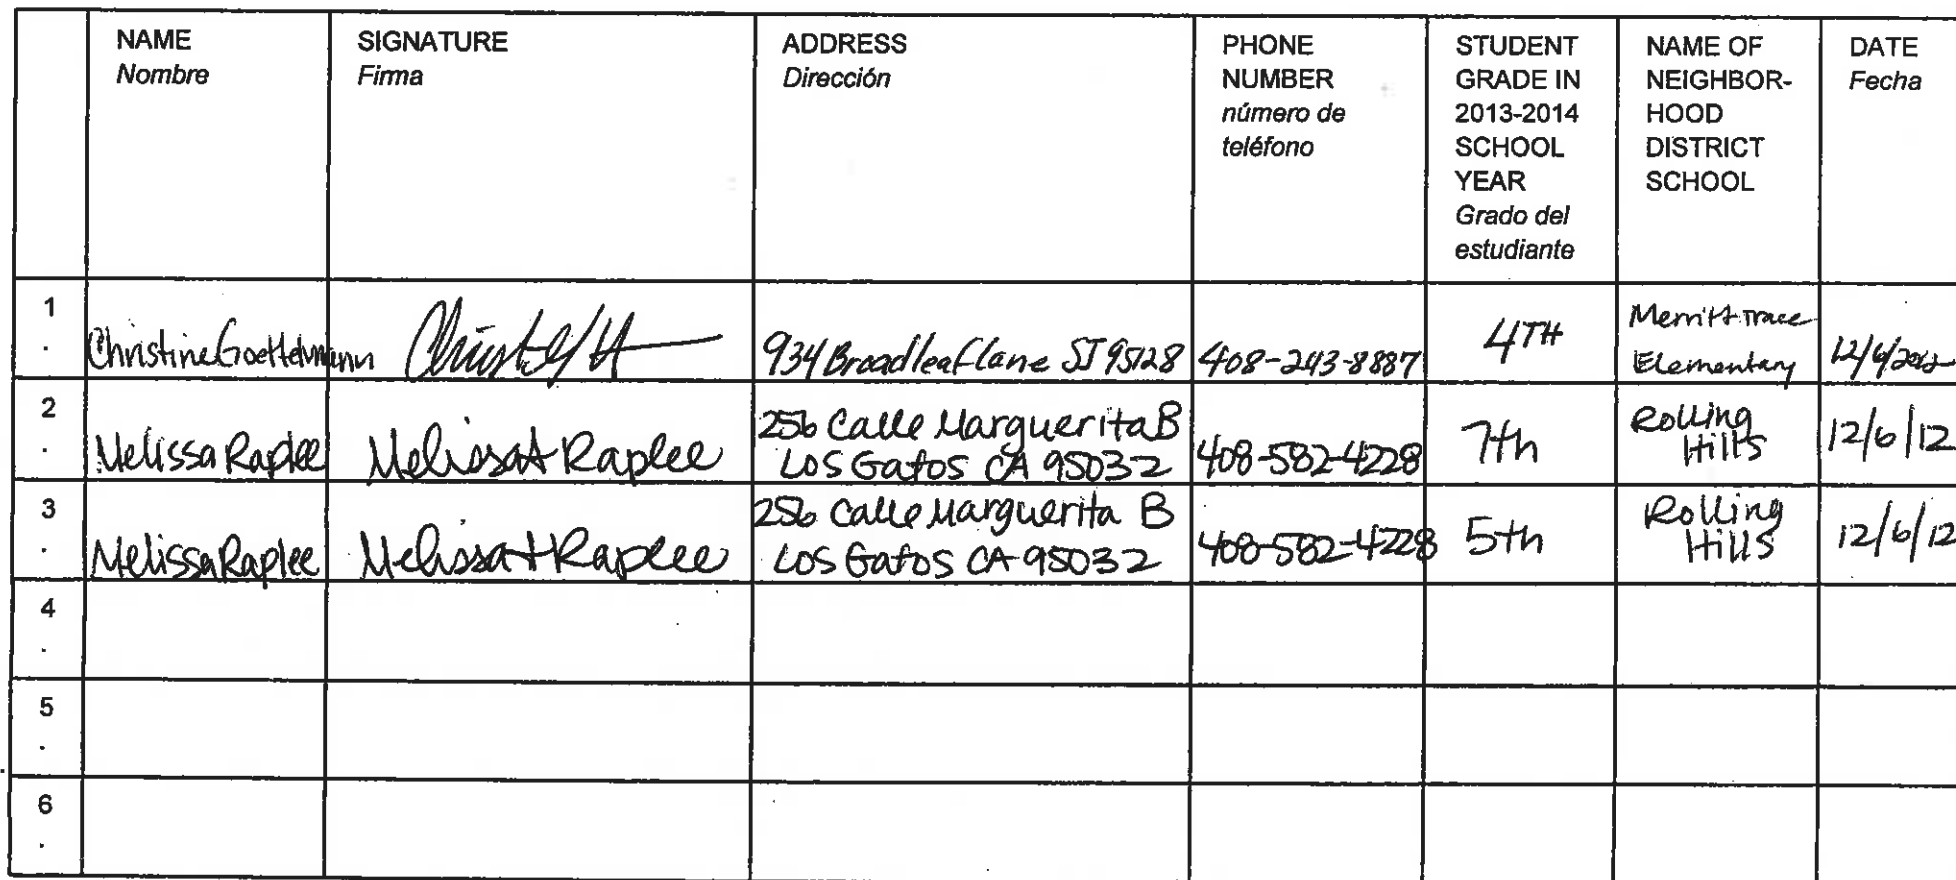 NAME
Nombre
SIGNATURE
Firma
ADDRESS
Dirección
PHONE
NUMBER
número de
teléfono
STUDENT
GRADE IN
2013-2014
SCHOOL
YEAR
Grado del
estudiante
NAME OF
NEIGHBOR-
HOOD
DISTRICT
SCHOOL
DATE
Fecha
1
.
Christine Goettelmann
934 Broadleaf Lane SJ 95128
408-243-8887
4TH
Merritt Trace
Elementary
12/6/2012
2
.
Melissa Raplee
Melissa A Raplee
256 Calle Marguerita B
Los Gatos CA 95032
408-582-4228
7th
Rolling
Hills
12/6/12
3
.
Melissa Raplee
Melissa A Raplee
256 Calle Marguerita B
Los Gatos CA 95032
408-582-4228
5th
Rolling
Hills
12/6/12
4
.
5
.
6
.